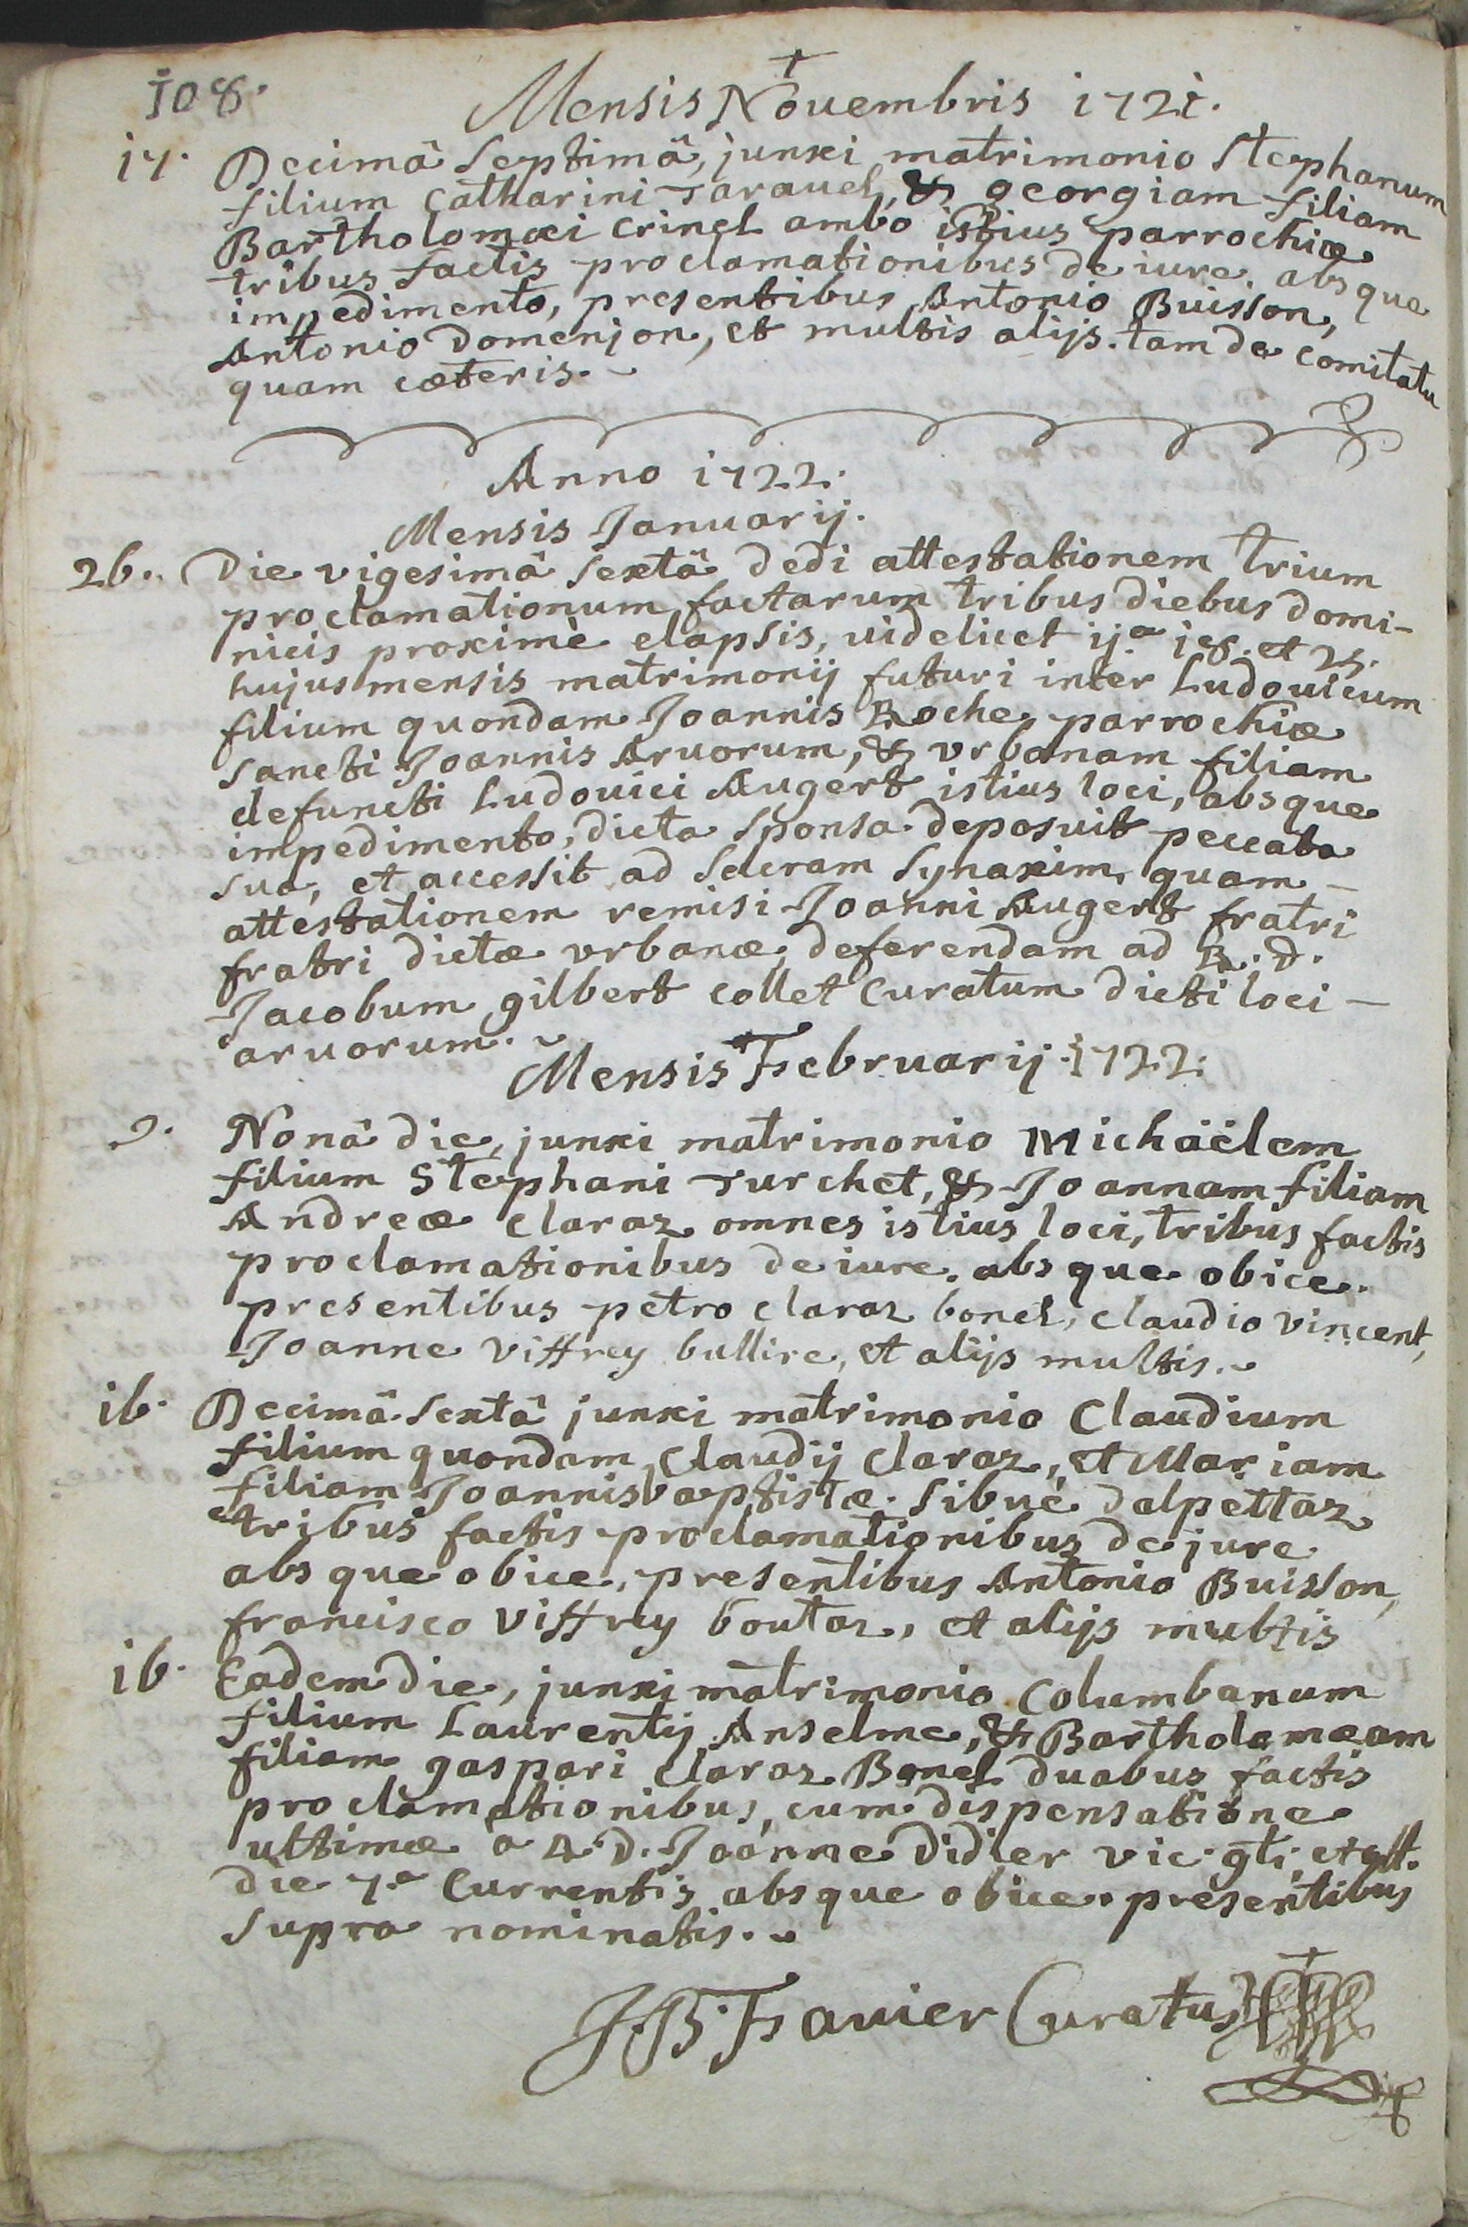 108.
Mensis Nouembris 1721.
17. Decimâ Septimâ, junxi matrimonio Stephanum
filium Catharini Taravel, & georgiam filiam
Bartholomœi Crinel ambo istius parrochiæ
tribus factis proclamationibus de iure absque
impedimento, presentibus Antonio Buisson,
Antonio Domenjon, et multis alijs tam de comitatu
quam cæteris.
Anno 1722.
Mensis Januarij.
26. Die vigesimâ Sextâ dedi attestationem trium
proclamationum factarum tribus diebus domi-
nicis proximè elapsis, videlicet 11.ª 18. et 25.
hujus mensis matrimonij futuri inter Ludouicum
filium quondam Joannis Roche parrochiæ
Sancti Joannis Aruorum, & vrbanam filiam
defuncti Ludouici Augert istius loci, absque
impedimento, dicta Sponsa deposuit peccata
sua, et accessit ad Sacram Synaxim, quam -
attestationem remisi Joanni Augert fratri
fratri dictæ vrbanæ deferendam ad R. d.
Jacobum gilbert collet Curatum dicti loci -
aruorum.
Mensis Februarij 1722.
9. Nonâ die, junxi matrimonio Michäëlem
filium Stephani Turchet, & Joannam filiam
Andreæ Claraz omnes istius loci, tribus factis
proclamationibus de iure absque obice.
presentibus petro claraz bonel, claudio vincent,
Joanne Viffrey bullire, et alijs multis.
16. Decimâ Sextâ junxi matrimonio Claudium
filium quondam Claudij Claraz, et Mariam
filiam Joannisbaptistæ Sibué dalpettaz
tribus factis proclamationibus de jure
absque obice, presentibus Antonio Buisson,
francisco Viffrey boutaz, et alijs multis
16. Eadem die, junxi matrimonio Columbanum
filium Laurentij Anselme, & Bartholomæam
filiam gaspari Claraz Bonel duabus factis
proclamationibus, cum dispensatione
ultimæ a R. D. Joanne Didier vic. gli. et off.
die 7.ª Currentis absque obice. presentibus
Supra nominatis.
J. B. Favier Curatus